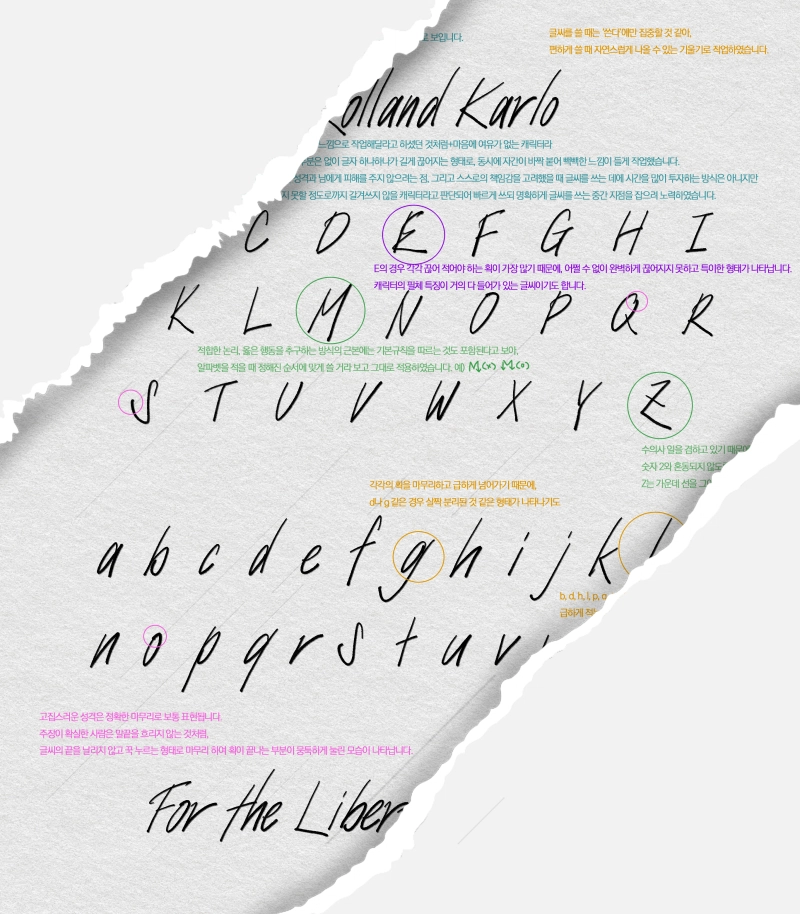 로 보입니다.
글씨를 쓸 때는 '쓴다'에만 집중할 것 같아,
편하게 쓸 때 자연스럽게 나올 수 있는 기울기로 작업하였습니다.
olland Karlo
느낌으로 작업해달라고 하셨던 것처럼+마음에 여유가 없는 캐릭터라
부분은 없이 글자 하나하나가 길게 끊어지는 형태로, 동시에 자간이 바짝 붙어 빽빽한 느낌이 들게 작업했습니다.
성격과 남에게 피해를 주지 않으려는 점, 그리고 스스로의 책임감을 고려했을 때 글씨를 쓰는 데에 시간을 많이 투자하는 방식은 아니지만
못할 정도로까지 갈겨쓰지 않을 캐릭터라고 판단되어 빠르게 쓰되 명확하게 글씨를 쓰는 중간 지점을 잡으려 노력하였습니다.
C D E F G H I
E의 경우 각각 끊어 적어야 하는 획이 가장 많기 때문에, 어쩔 수 없이 완벽하게 끊어지지 못하고 특이한 형태가 나타납니다.
캐릭터의 필체 특징이 거의 다 들어가 있는 글씨이기도 합니다.
K L M N O P Q R
적합한 논리, 옳은 행동을 추구하는 방식의 근본에는 기본규칙을 따르는 것도 포함된다고 보아,
알파벳을 적을 때 정해진 순서에 맞게 쓸 거라 보고 그대로 적용하였습니다. 예) M(x) M(o)
S T U V W X Y Z
수의사 일을 겸하고 있기 때문에
숫자 2와 혼동되지 않도
Z는 가운데 선을 그
각각의 획을 마무리하고 급하게 넘어가기 때문에,
d나 g 같은 경우 살짝 분리된 것 같은 형태가 나타나기도
a b c d e f g h i j k l
b, d, h, l, p, q
급하게 적
n o p q r s t u v
고집스러운 성격은 정확한 마무리로 보통 표현됩니다.
주장이 확실한 사람은 말끝을 흐리지 않는 것처럼,
글씨의 끝을 날리지 않고 꾹 누르는 형태로 마무리 하여 획이 끝나는 부분이 뭉툭하게 눌린 모습이 나타납니다.
For the Liber